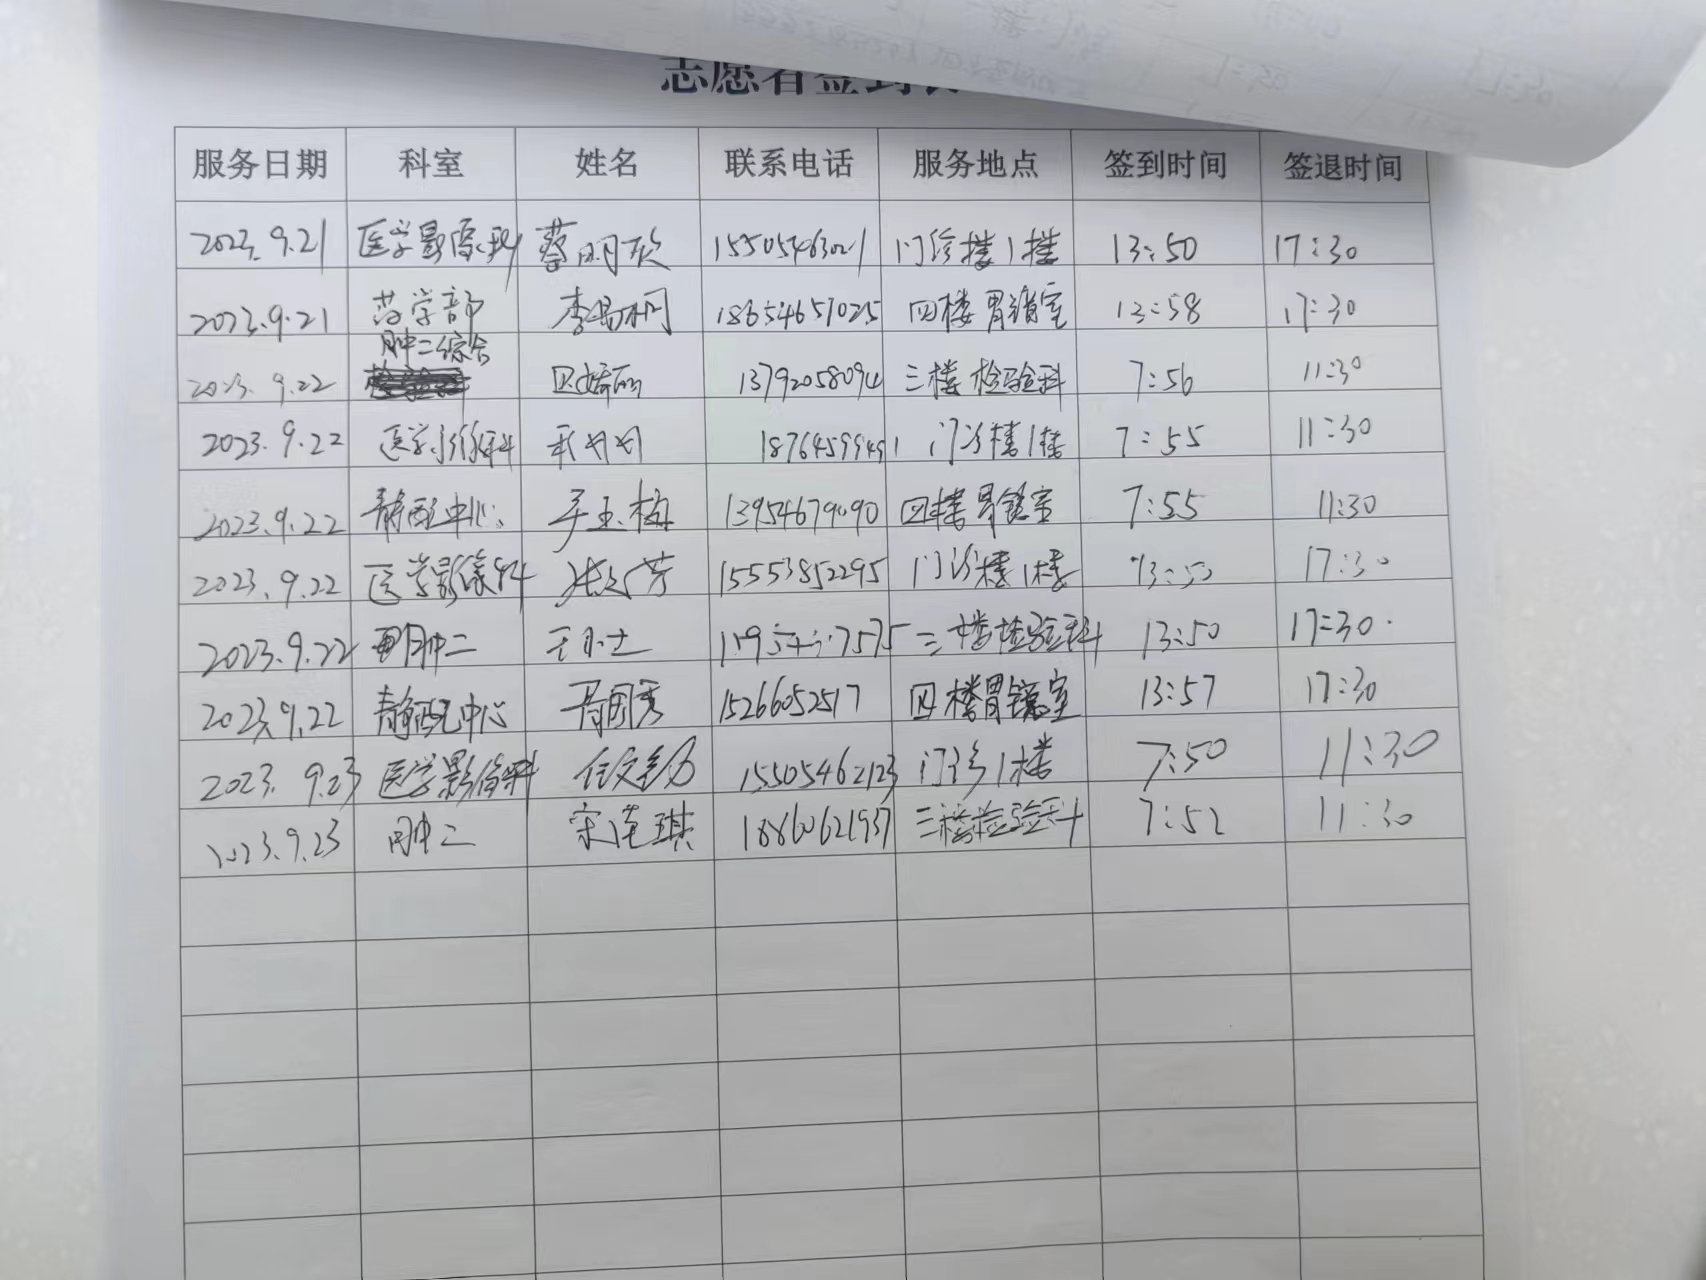 志愿者签到表
服务日期 科室 姓名 联系电话 服务地点 签到时间 签退时间
2023.9.21 医学影像科 蔡明欣 15505463021 门诊楼1楼 13:50 17:30
2023.9.21 药学部 李 18654657025 四楼胃镜室 13:58 17:30
肿二综合
2023.9.22 13792058094 三楼检验科 7:56 11:30
2023.9.22 医学影像科 18764599491 门诊楼1楼 7:55 11:30
2023.9.22 静配中心 玉梅 13954679090 四楼胃镜室 7:55 11:30
2023.9.22 医学影像科 芳 15553852295 门诊楼1楼 13:50 17:30
2023.9.22 肿二 三楼检验科 13:50 17:30
2023.9.22 静配中心 15266052517 四楼胃镜室 13:57 17:30
2023.9.23 医学影像科 任文 15505462123 门诊1楼 7:50 11:30
2023.9.23 肿二 宋莲琪 18860621937 三楼检验科 7:52 11:30